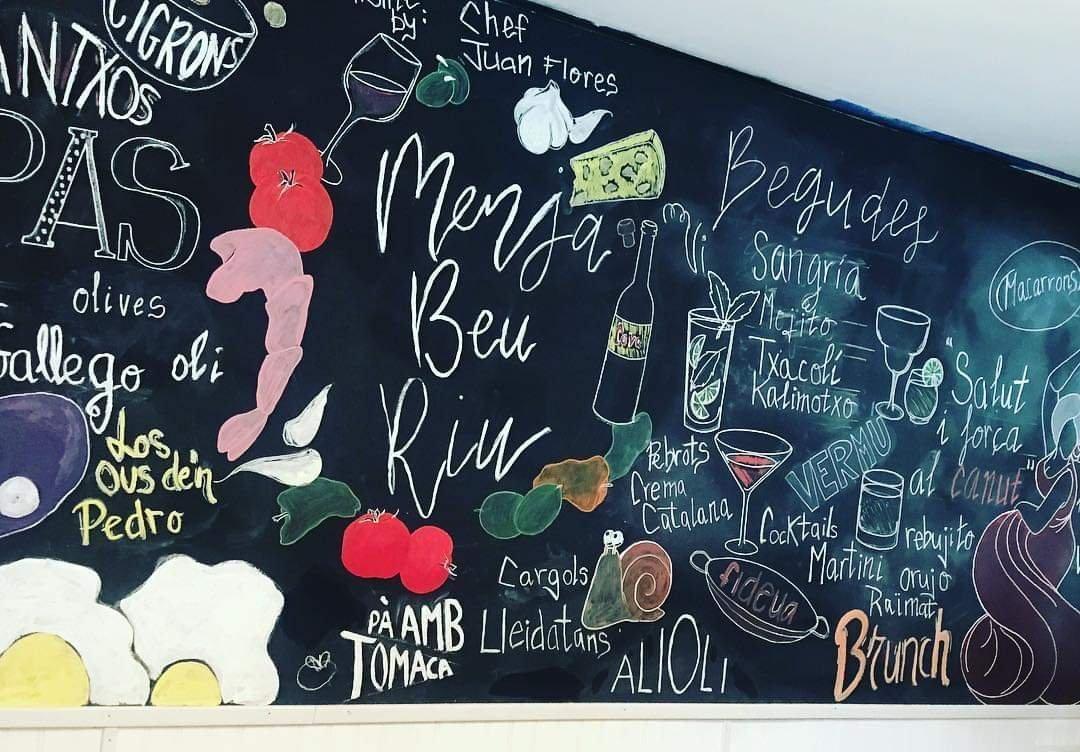 CIGRONS
by:
Chef
Juan Flores
ANTXOS
PAS
olives
Gallego oli
Los
Ous d'en
Pedro
Menja
Beu
Riu
Vi
Cava
Begudes
Sangria
Mojito
Txacoli
Kalimotxo
VERMU
Macarrons
"Salut
i força
al canut"
Pebrots
Crema
Catalana
Cocktails
Martini
rebujito
orujo
Raïmat
fideua
Cargols
Lleidatans
PÀ AMB
TOMACA
ALIOLI
Brunch